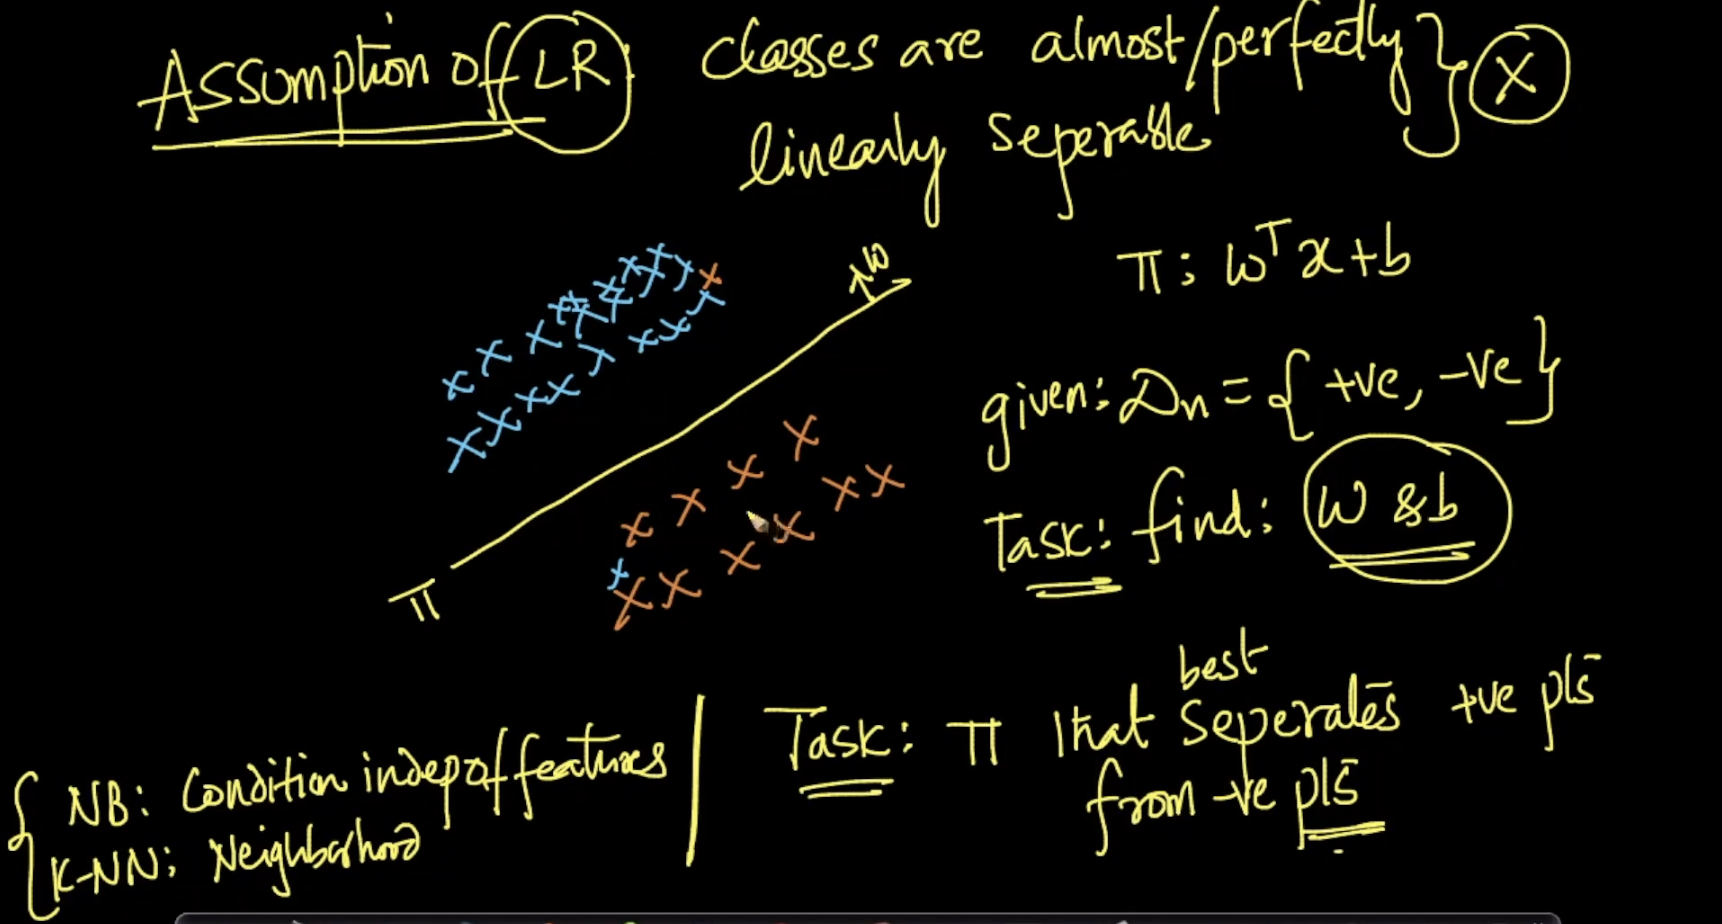 Assumption of LR: classes are almost/perfectly } X
linearly seperable
W
π: wᵀx+b
given: Dn = { +ve, -ve }
Task: find: w & b
π
best
Task: π that seperates +ve pts
from -ve pts
{ NB: Condition indep of features
K-NN: Neighborhood